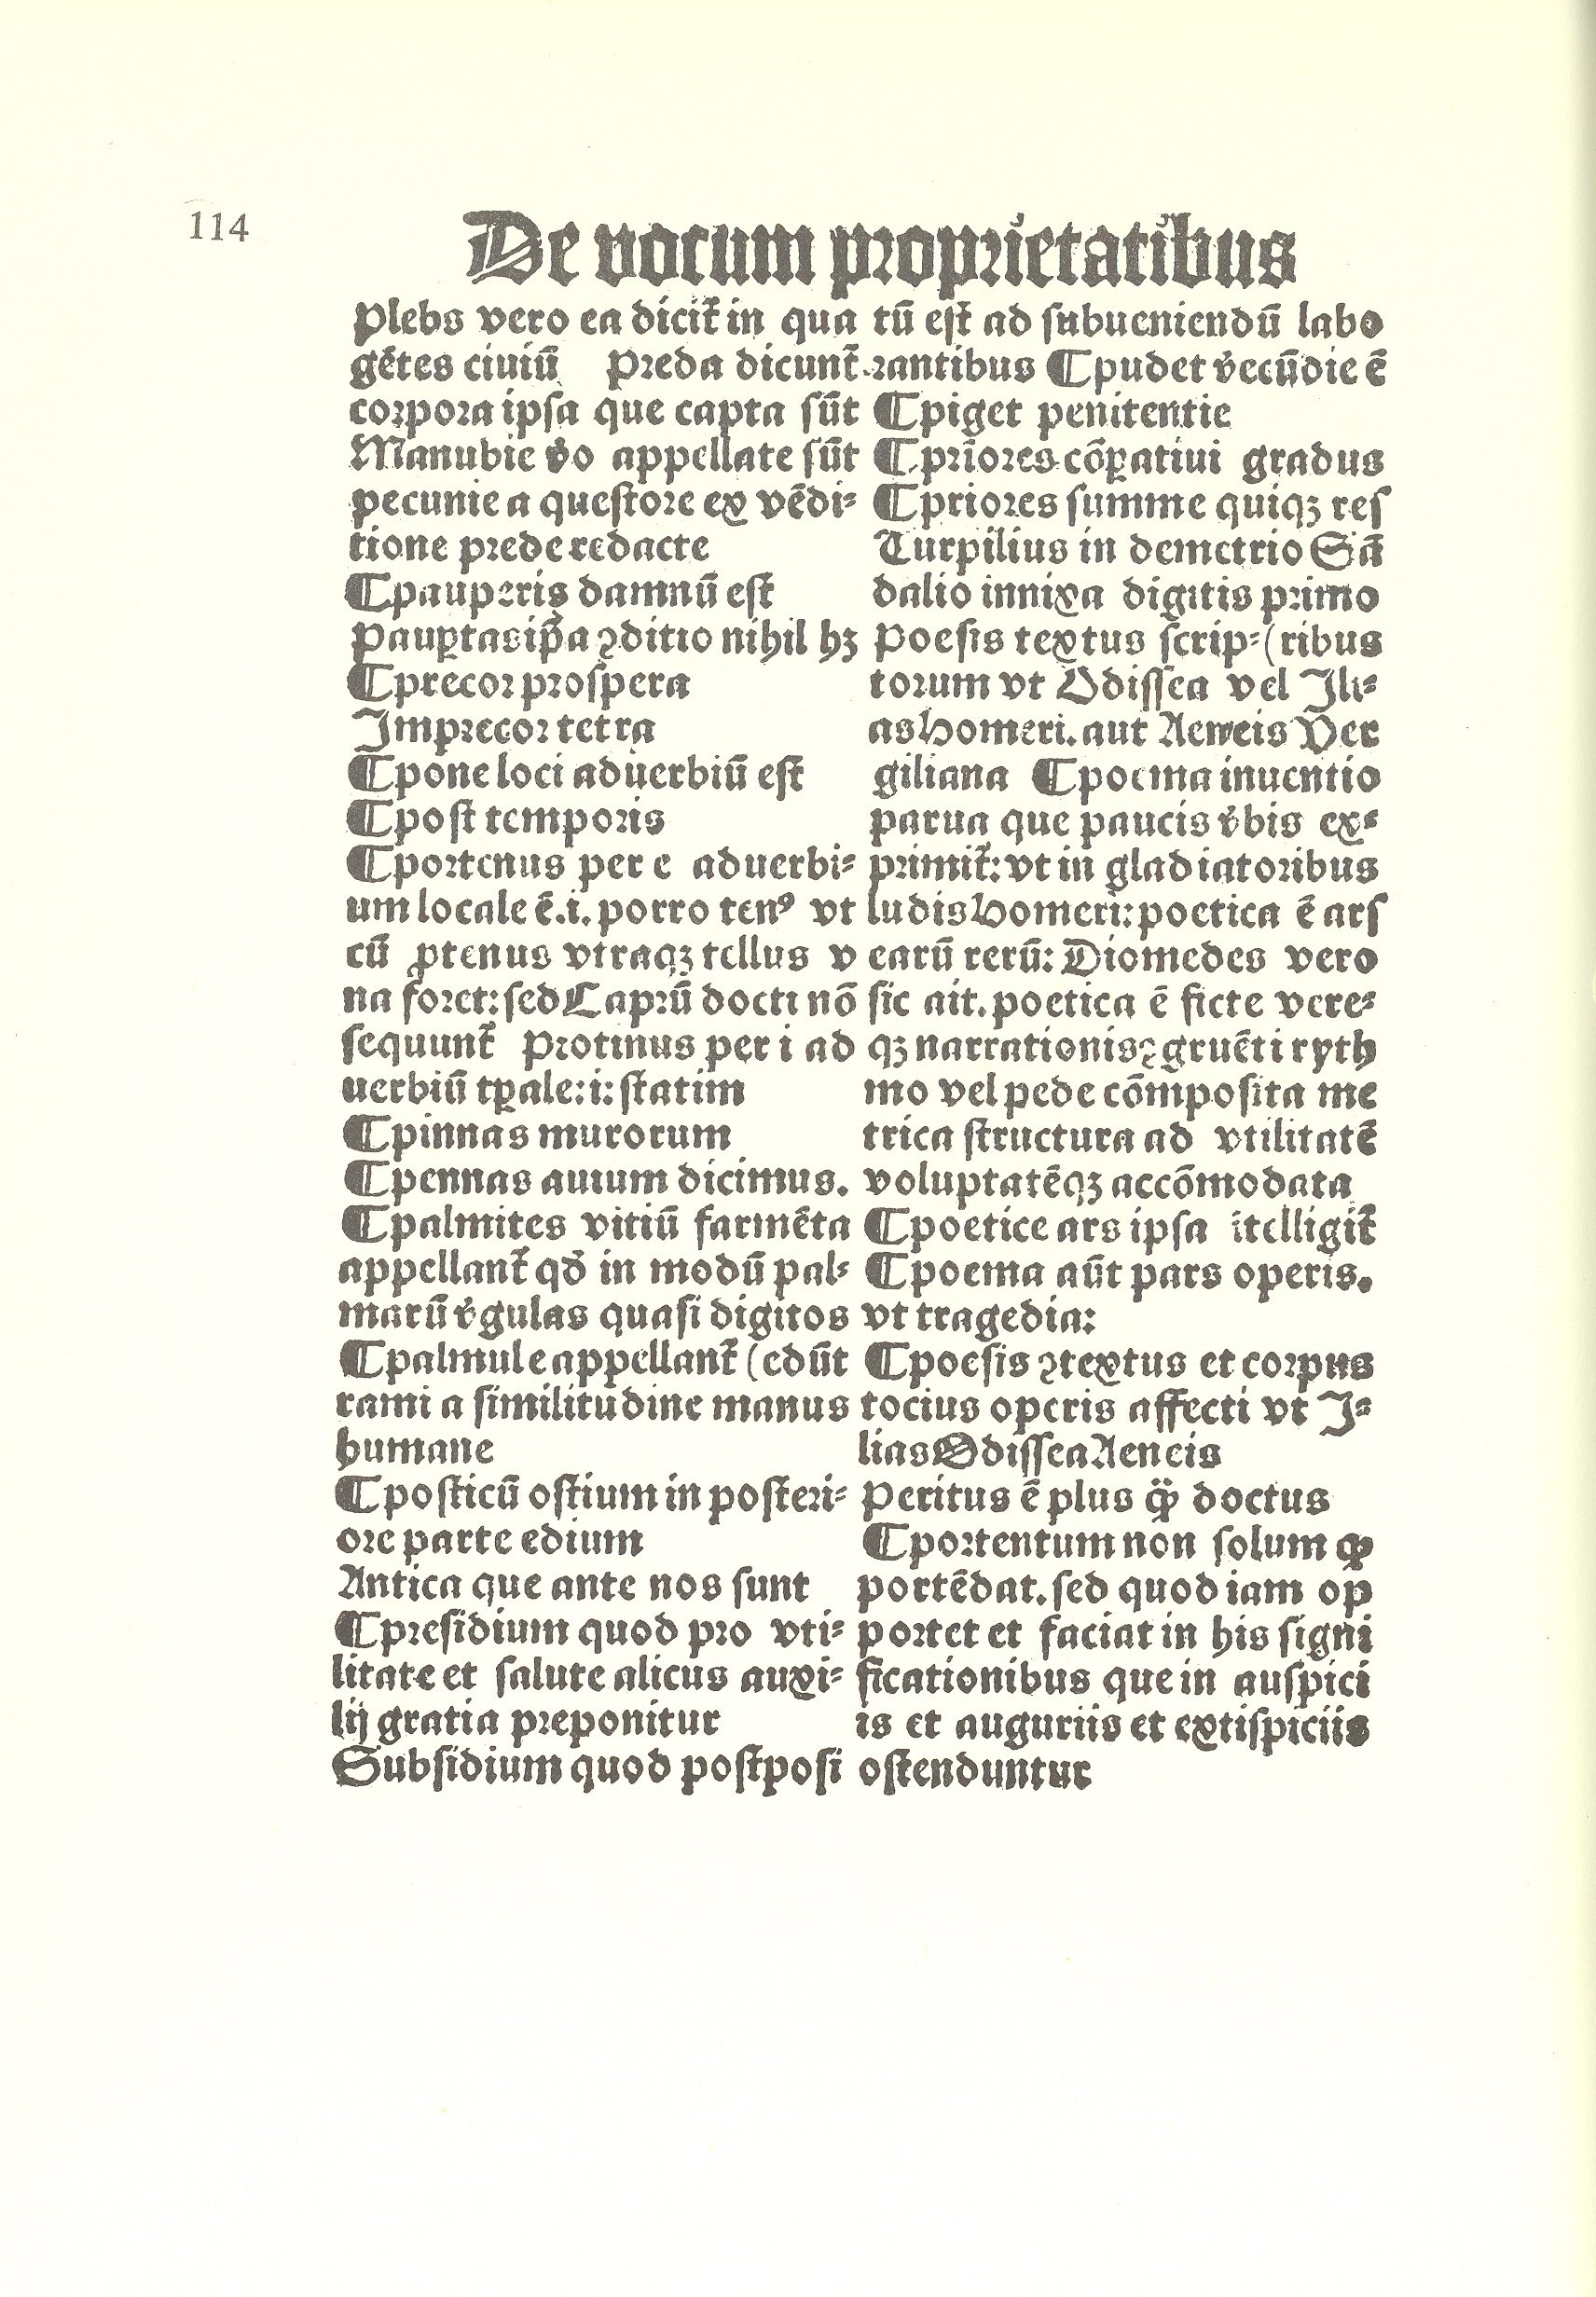 114
De vocum proprietatibus
Plebs vero ea dicit̃ in qua
gẽtes ciuiũ Preda dicunt̃
corpora ipsa que capta sũt
Manubie v̾o appellate sũt
pecunie a questore ex vẽdi⸗
tione prede redacte
¶pauperis damnũ est
Pauꝑtas ip̃a ꝯditio nihil hꝫ
¶precor prospera
Imprecor tetra
¶pone loci aduerbiũ est
¶post temporis
¶portenus per e aduerbi⸗
um locale ẽ.i. porro tenꝰ vt
cũ ꝓtenus vtraqꝫ tellus v
na foret: sed Caprũ docti nõ
sequunt̃ Protinus per i ad
uerbiũ tꝑale:i: statim
¶pinnas murorum
¶pennas auium dicimus.
¶palmites vitiũ farmẽta
appellant̃ qď in modũ pal⸗
marũ v̾gulas quasi digitos
¶palmule appellant̃ (edũt
rami a similitudine manus
humane
¶posticũ ostium in posteri⸗
ore parte edium
Antica que ante nos sunt
¶presidium quod pro vti⸗
litate et salute alicus auxi⸗
lij gratia preponitur
Subsidium quod postposi
tũ est ad subueniendũ labo
rantibus ¶pudet v̾ecũdie ẽ
¶piget penitentie
¶priores cõꝑatiui gradus
¶priores summe quiqꝫ res
Turpilius in demetrio Sã
dalio innixa digitis primo
Poesis textus scrip⸗(ribus
torum vt Odissea vel Ili⸗
as Homeri. aut Aeneis Ver
giliana ¶poema inuentio
parua que paucis v̾bis ex⸗
primit̃: vt in gladiatoribus
ludis Homeri: poetica ẽ ars
earũ rerũ: Diomedes vero
sic ait. poetica ẽ ficte vere⸗
qꝫ narrationis ꝯgruẽti ryth
mo vel pede cõmposita me
trica structura ad vtilitatẽ
voluptatẽqꝫ accõmodata
¶poetice ars ipsa ĩtelligit̃
¶poema aũt pars operis.
vt tragedia:
¶poesis ꝯtextus et corpus
tocius operis affecti vt I⸗
lias Odissea Aeneis
Peritus ẽ plus q̃ꝫ doctus
¶portentum non solum ꝙ
portẽdat. sed quod iam op
portet et faciat in his signi
ficationibus que in auspici
is et auguriis et extispiciis
ostenduntur